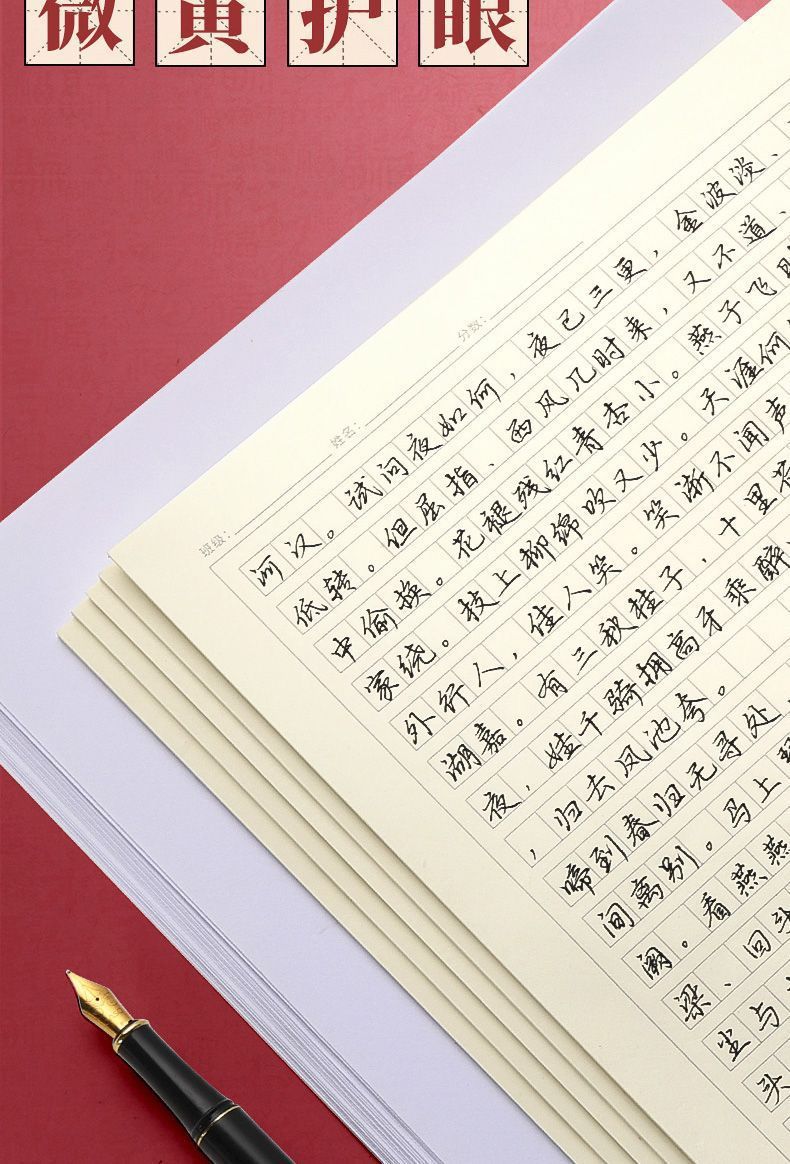 微黄护眼
班级：
姓名：
分数：
河汉。试问夜如何，夜已三更，金波淡、
低转。但屈指、西风几时来，又不道、
中偷换。花褪残红青杏小。燕子飞时
家绕。枝上柳绵吹又少。天涯何
外行人，佳人笑。笑渐不闻声
湖嘉。有三秋桂子，十里荷
夜，娃千骑拥高牙乘醉
，归去凤池夸。
啼到春归无寻处
间离别。马上琵
阙。看燕燕
梁、回头
尘与
头